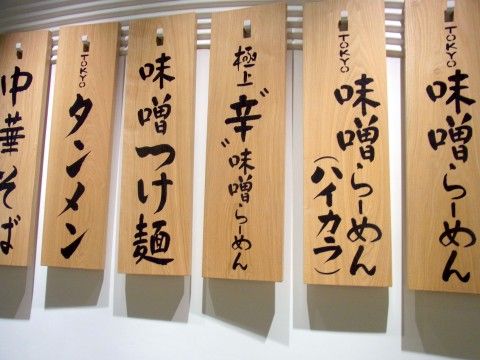 TOKYO
味噌らーめん
TOKYO
味噌らーめん
(ハイカラ)
極上
辛゛味噌らーめん
味噌つけ麺
TOKYO
タンメン
中華そば